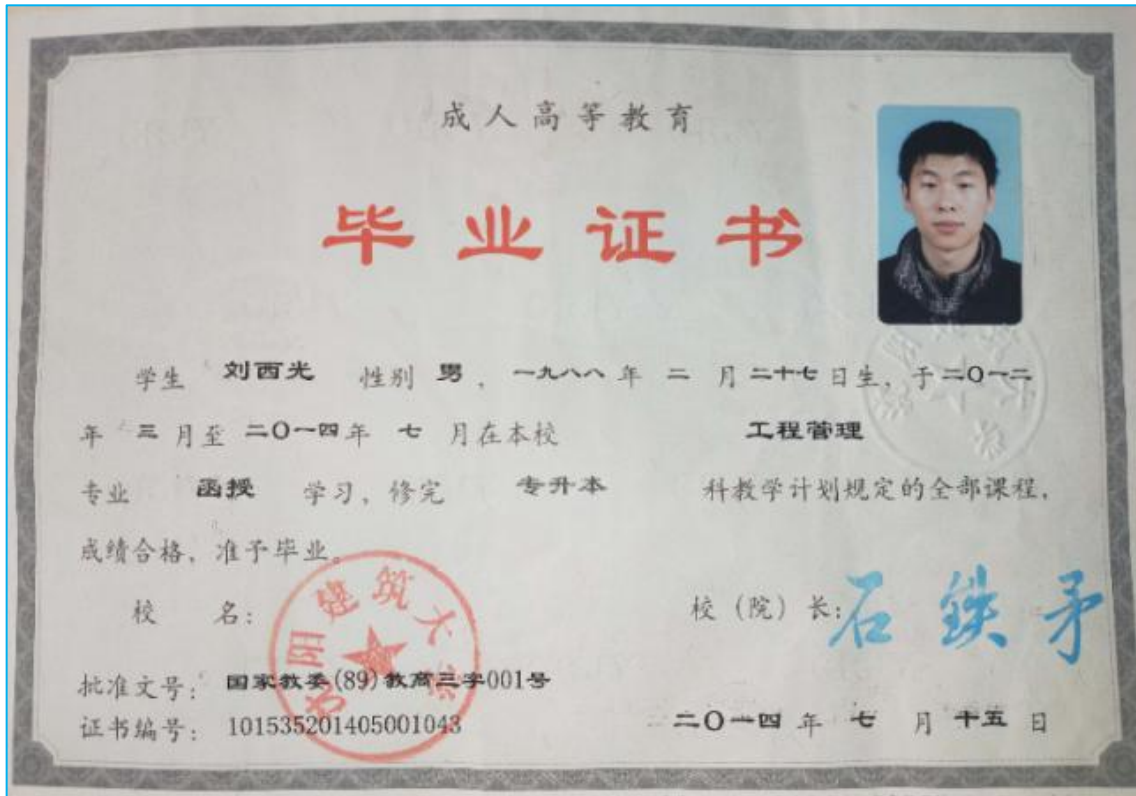 成人高等教育
毕业证书
学生 刘西光 性别 男，一九八八年 二 月二十七日生，于二〇一二
年 三 月至 二〇一四年 七 月在本校 工程管理
专业 函授 学习，修完 专升本 科教学计划规定的全部课程，
成绩合格，准予毕业。
校 名： 沈阳建筑大学
校（院）长：石铁矛
批准文号： 国家教委(89)教高三字001号
证书编号： 101535201405001043
二〇一四年 七 月 十五 日